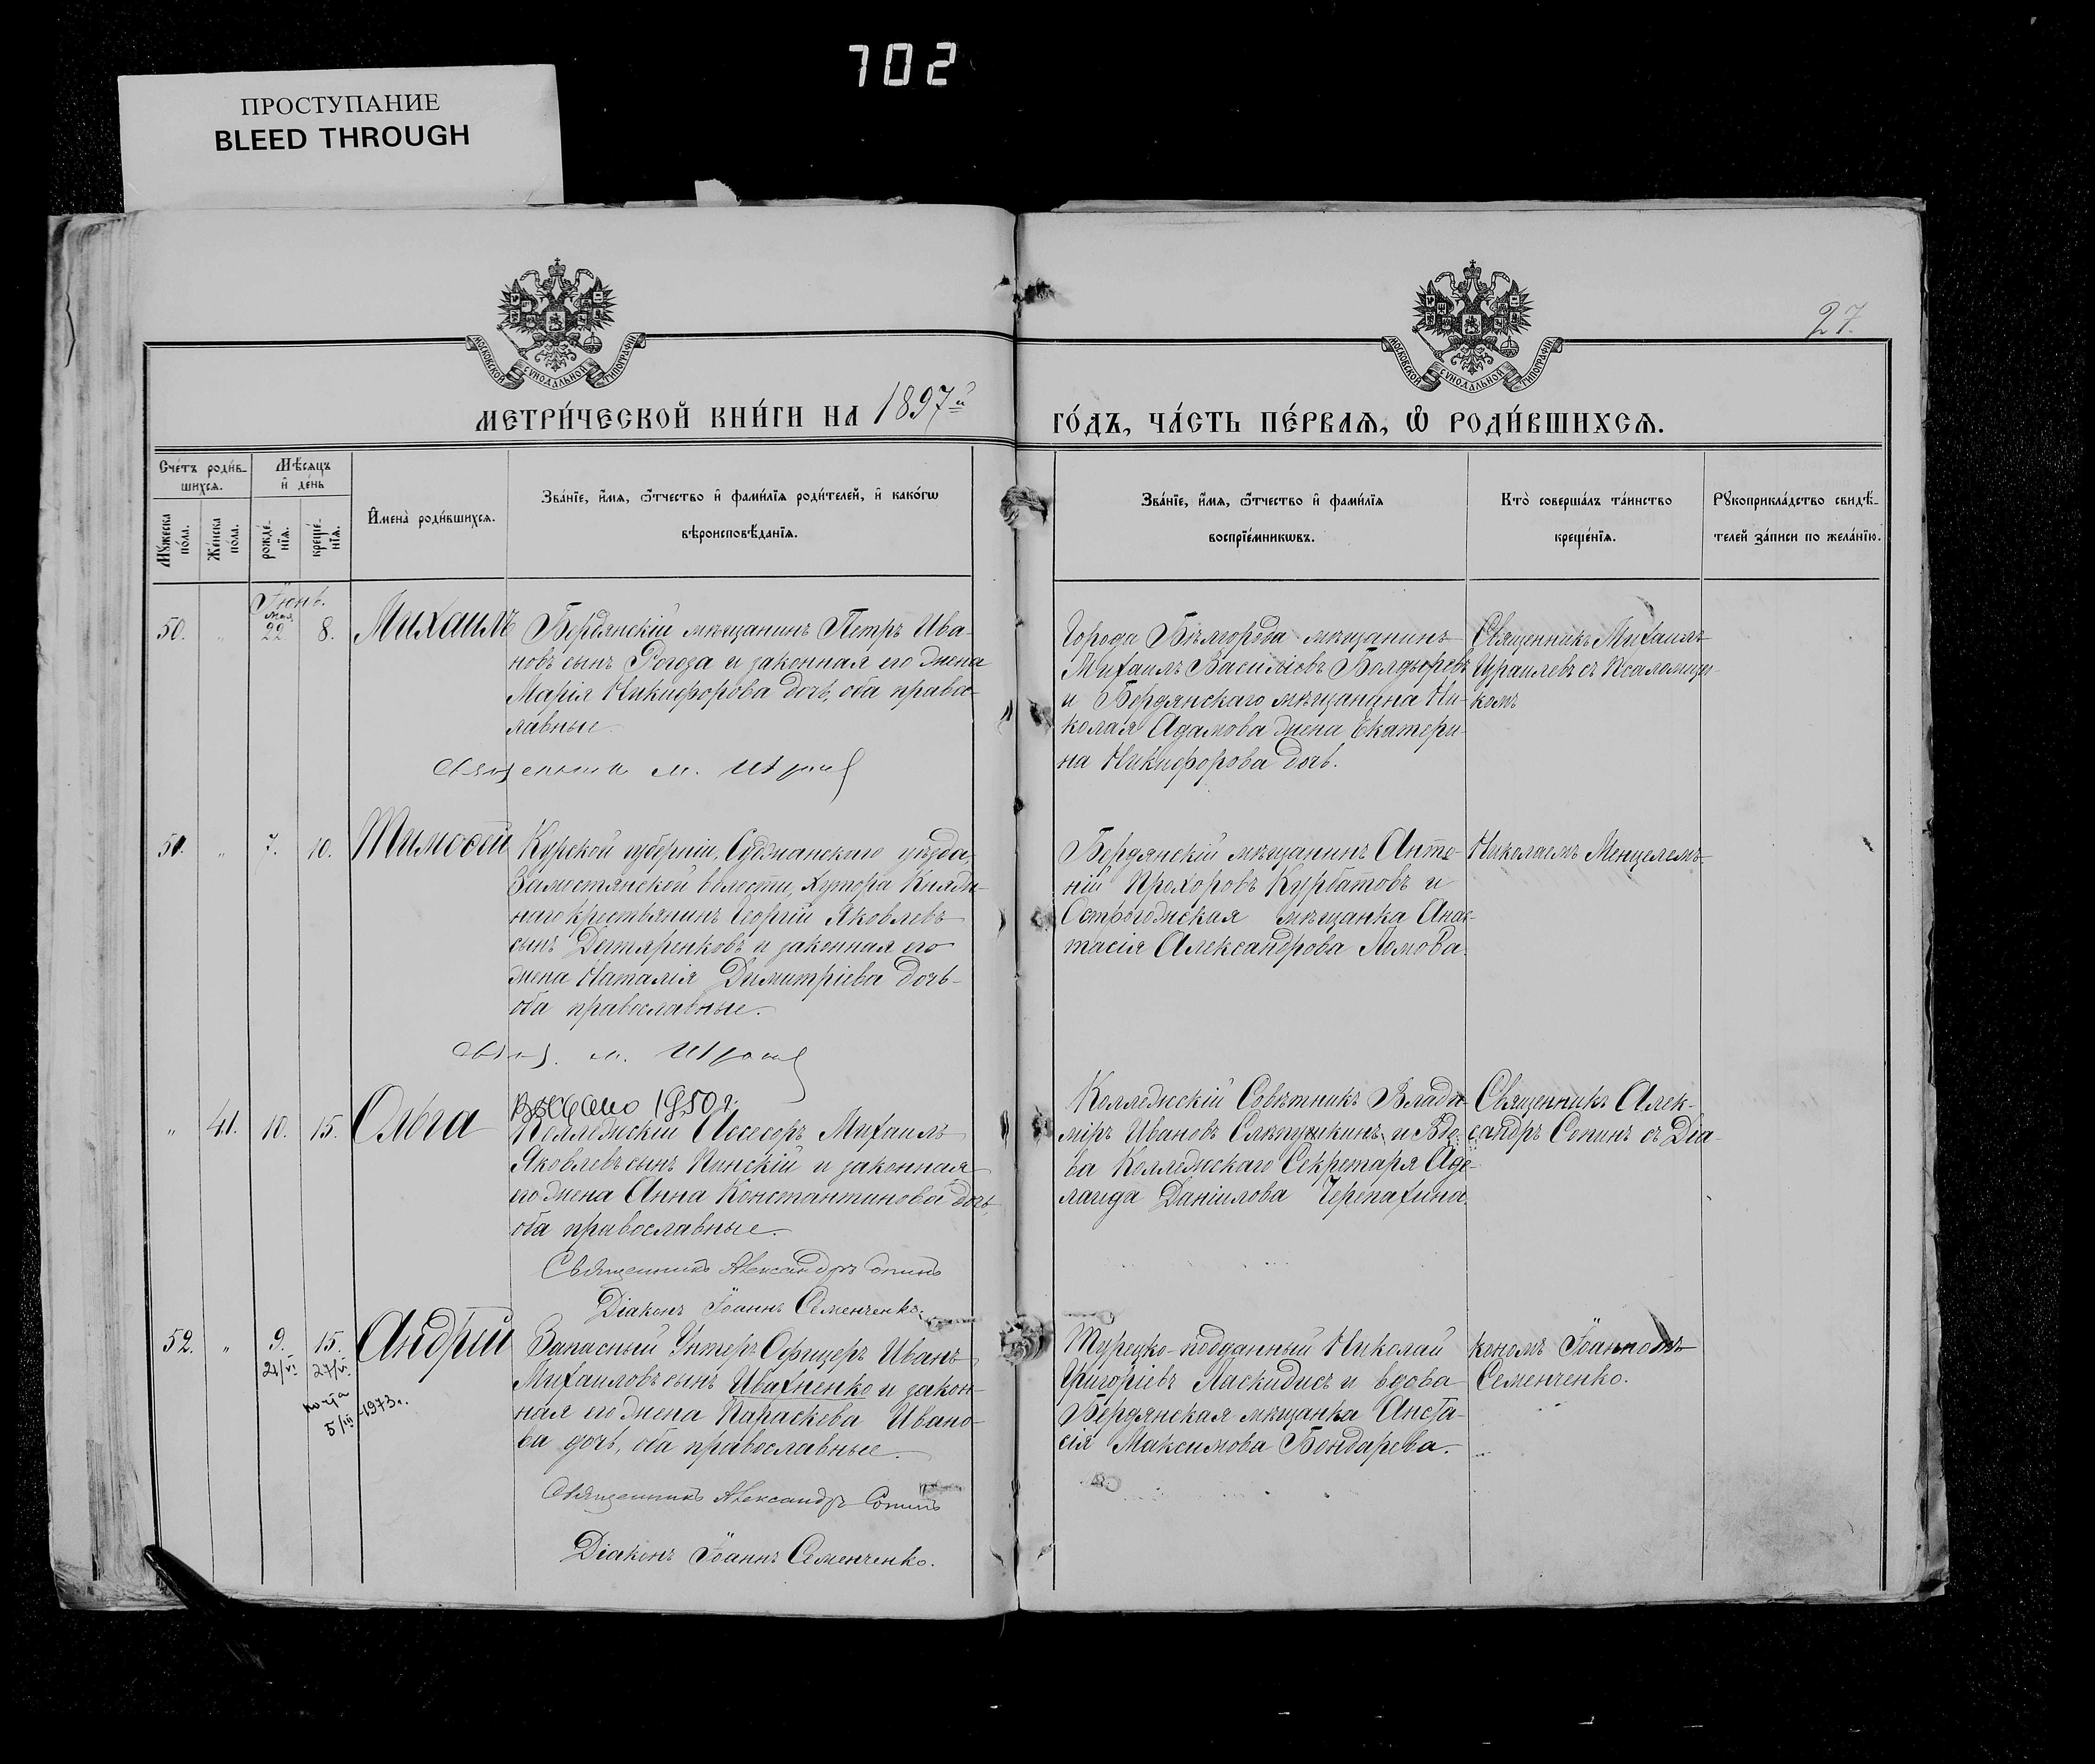 702
ПРОСТУПАНИЕ
BLEED THROUGH
27.
МОСКОВСКОЙ СѴНОДАЛЬНОЙ ТИПОГРАФІИ
МОСКОВСКОЙ СѴНОДАЛЬНОЙ ТИПОГРАФІИ
МЕТРИ́ЧЕСКОЙ КНИ́ГИ НА 1897й
ГО́ДЪ, ЧА́СТЬ ПЕ́РВАѦ, Ѡ РОДИ́ВШИХСѦ.
Сче́тъ роди́в-
шихсѧ.
Мѣ́сѧцъ
и҆ де́нь
Мꙋ́жеска
по́ла.
Же́нска
по́ла.
рожде́-
нїѧ.
креще́-
нїѧ.
И҆мена̀ роди́вшихсѧ.
Зва́нїе, и҆́мѧ, ѻ҆́тчество и҆ фами́лїѧ роди́телей, и҆ како́гѡ
вѣроисповѣ́данїѧ.
Зва́нїе, и҆́мѧ, ѻ҆́тчество и҆ фами́лїѧ
воспрїе́мникѡвъ.
Кто̀ соверша́лъ та́инство
креще́нїѧ.
Рꙋкоприкла́дство свидѣ́-
телей за́писи по жела́нїю.
Іюнь.
Мая
50. " 22 8. Михаилъ
Бердянскій мѣщанинъ Петръ Ива-
новъ сынъ Рогоза и законная его жена
Марія Никифорова дочь, оба право-
славные
Священникъ М. Изра
Города Бѣлгорода мѣщанинъ
Михаилъ Васильевъ Болдыревъ
и Бердянскаго мѣщанина Ни-
колая Адамова жена Екатери-
на Никифорова дочь.
Священникъ Михаилъ
Израилевъ съ Псаломщи-
комъ
51. " 7. 10. Тимоѳей
Курской губерніи, Суджанскаго уѣзда,
Замостянской волости, хутора Княж-
наго крестьянинъ Георгій Яковлевъ
сынъ Дегтяренковъ и законная его
жена Наталія Димитріева дочь
оба православные.
Свящ. М. Изра
Бердянскій мѣщанинъ Анто-
ній Прохоровъ Курбатовъ и
Острогожская мѣщанка Анас-
тасія Александрова Ломова.
Николаемъ Менцелемъ
" 41. 10. 15. Ольга
Выдано 1950 г.
Коллежскій Ассесоръ Михаилъ
Яковлевъ сынъ Пинскій и законная
его жена Анна Константинова дочь,
оба православные.
Священникъ Александръ Сопинъ
Діаконъ Іоаннъ Семенченко.
Коллежскій Совѣтникъ Влади-
міръ Ивановъ Слѣпушкинъ и Вдо-
ва Коллежскаго Секретаря Аде-
лаида Даніилова Черепахина.
Священникъ Алек-
сандръ Сопинъ съ Діа-
52. " 9. 15. Андрей
21/VI 27/VI
5/III-1973г.
Запасный Унтеръ Офицеръ Иванъ
Михаиловъ сынъ Ивахненко и закон-
ная его жена Параскева Ивано-
ва дочь, оба православные.
Священникъ Александръ Сопинъ
Діаконъ Іоаннъ Семенченко.
Турецко-подданный Николай
Григоріевъ Ласкидисъ и вдова
Бердянская мѣщанка Анста-
сія Максимова Бондарева.
кономъ Іоанномъ
Семенченко.